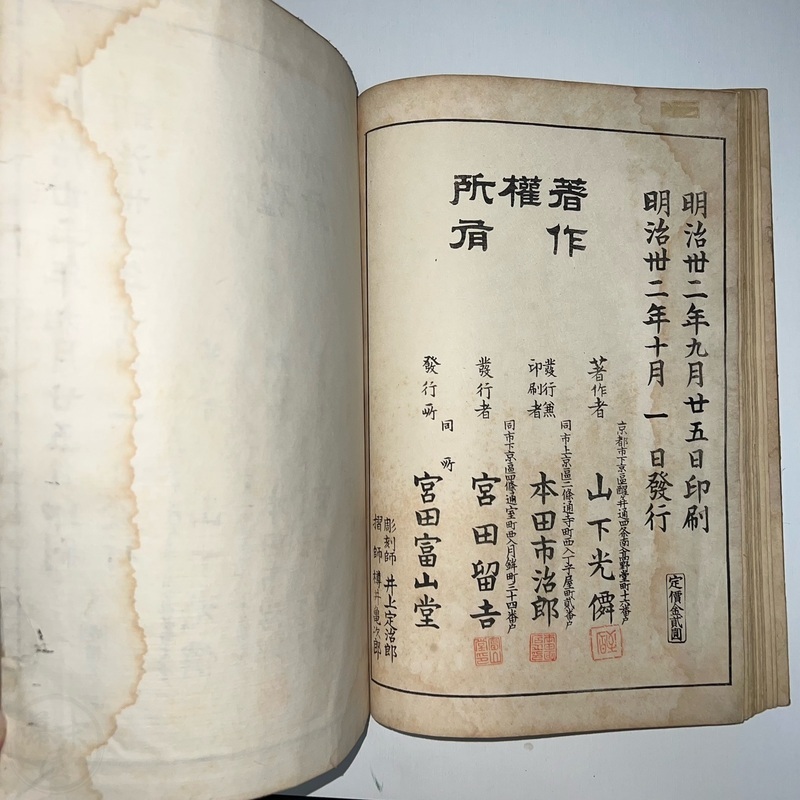 明治卅二年九月廿五日印刷
明治卅二年十月一日發行
定價金貳圓
著作
權
所有
京都市下京區醒ヶ井通四条南高野堂町十六番戸
著作者 山下光
同市上京區三條通寺町西入丁子屋町貳番戸
發行兼
印刷者 本田市治郎
同市下京區四條通室町西入月鉾町三十四番戸
發行者 宮田留吉
同所
發行所 宮田富山堂
彫刻師 井上定治郎
摺師 樽井亀次郎